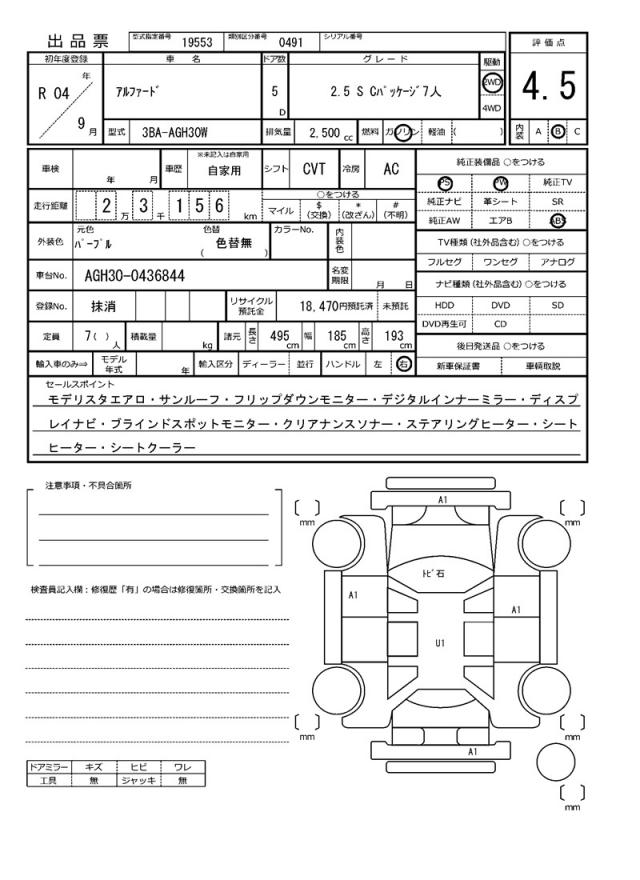 出品票 型式指定番号 19553 類別区分番号 0491 シリアル番号
評価点
4.5
初年度登録 車名 ドア数 グレード 駆動
R 04 年 9 月
アルファード 5 D 2.5 S Cパッケージ7人 2WD 4WD
型式 3BA-AGH30W 排気量 2,500 cc 燃料 ガソリン 軽油 ( )
内装 A B C
車検 年 月 車歴 ※未記入は自家用 自家用 シフト CVT 冷房 AC
純正装備品 ○をつける
PS PW 純正TV
純正ナビ 革シート SR
純正AW エアB ABS
走行距離 2 万 3 千 1 5 6 km
○をつける
マイル $ (交換) * (改ざん) # (不明)
外装色 元色 パープル 色替 色替無 ( ) カラーNo. 内装色
TV種類 (社外品含む) ○をつける
フルセグ ワンセグ アナログ
車台No. AGH30-0436844 名変期限 月 日
ナビ種類 (社外品含む) ○をつける
HDD DVD SD
DVD再生可 CD
登録No. 抹消 リサイクル預託金 18,470円預託済 未預託
定員 7( ) 人 積載量 kg 諸元 長さ 495 cm 幅 185 cm 高さ 193 cm
後日発送品 ○をつける
新車保証書 車輌取説
輸入車のみ⇒ モデル年式 年 輸入区分 ディーラー 並行 ハンドル 左 右
セールスポイント
モデリスタエアロ・サンルーフ・フリップダウンモニター・デジタルインナーミラー・ディスプ
レイナビ・ブラインドスポットモニター・クリアナンスソナー・ステアリングヒーター・シート
ヒーター・シートクーラー
注意事項・不具合箇所
検査員記入欄：修復歴「有」の場合は修復箇所・交換箇所を記入
ドアミラー キズ ヒビ ワレ
工具 無 ジャッキ 無
A1
mm mm
トビ石
A1 A1
U1
mm mm
A1
mm